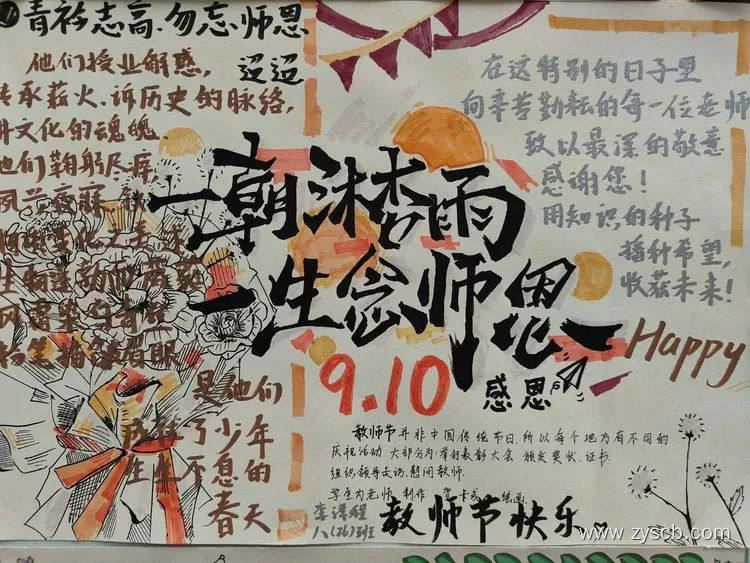 青衿志高、勿忘师恩
他们授业解惑,
迢迢
传承薪火.诉历史的脉络,
讲文化的魂魄.
他们鞠躬尽瘁
夙兴夜寐
是他们
了少年
生生不息的
春天
一朝沐杏雨
一生念师恩
9.10
感恩
在这特别的日子里
向辛苦勤耘的每一位老师
致以最深的敬意
感谢您!
用知识的种子
播种希望,
收获未来!
Happy
教师节并非中国传统节日,所以每个地方有不同的
庆祝活动 大部分为:举行表彰大会 颁发奖状、证书.
组织领导去访、慰问教师.
学生为老师 制作 卡 绘画.
八(26)班
教师节快乐
www.zyscb.com